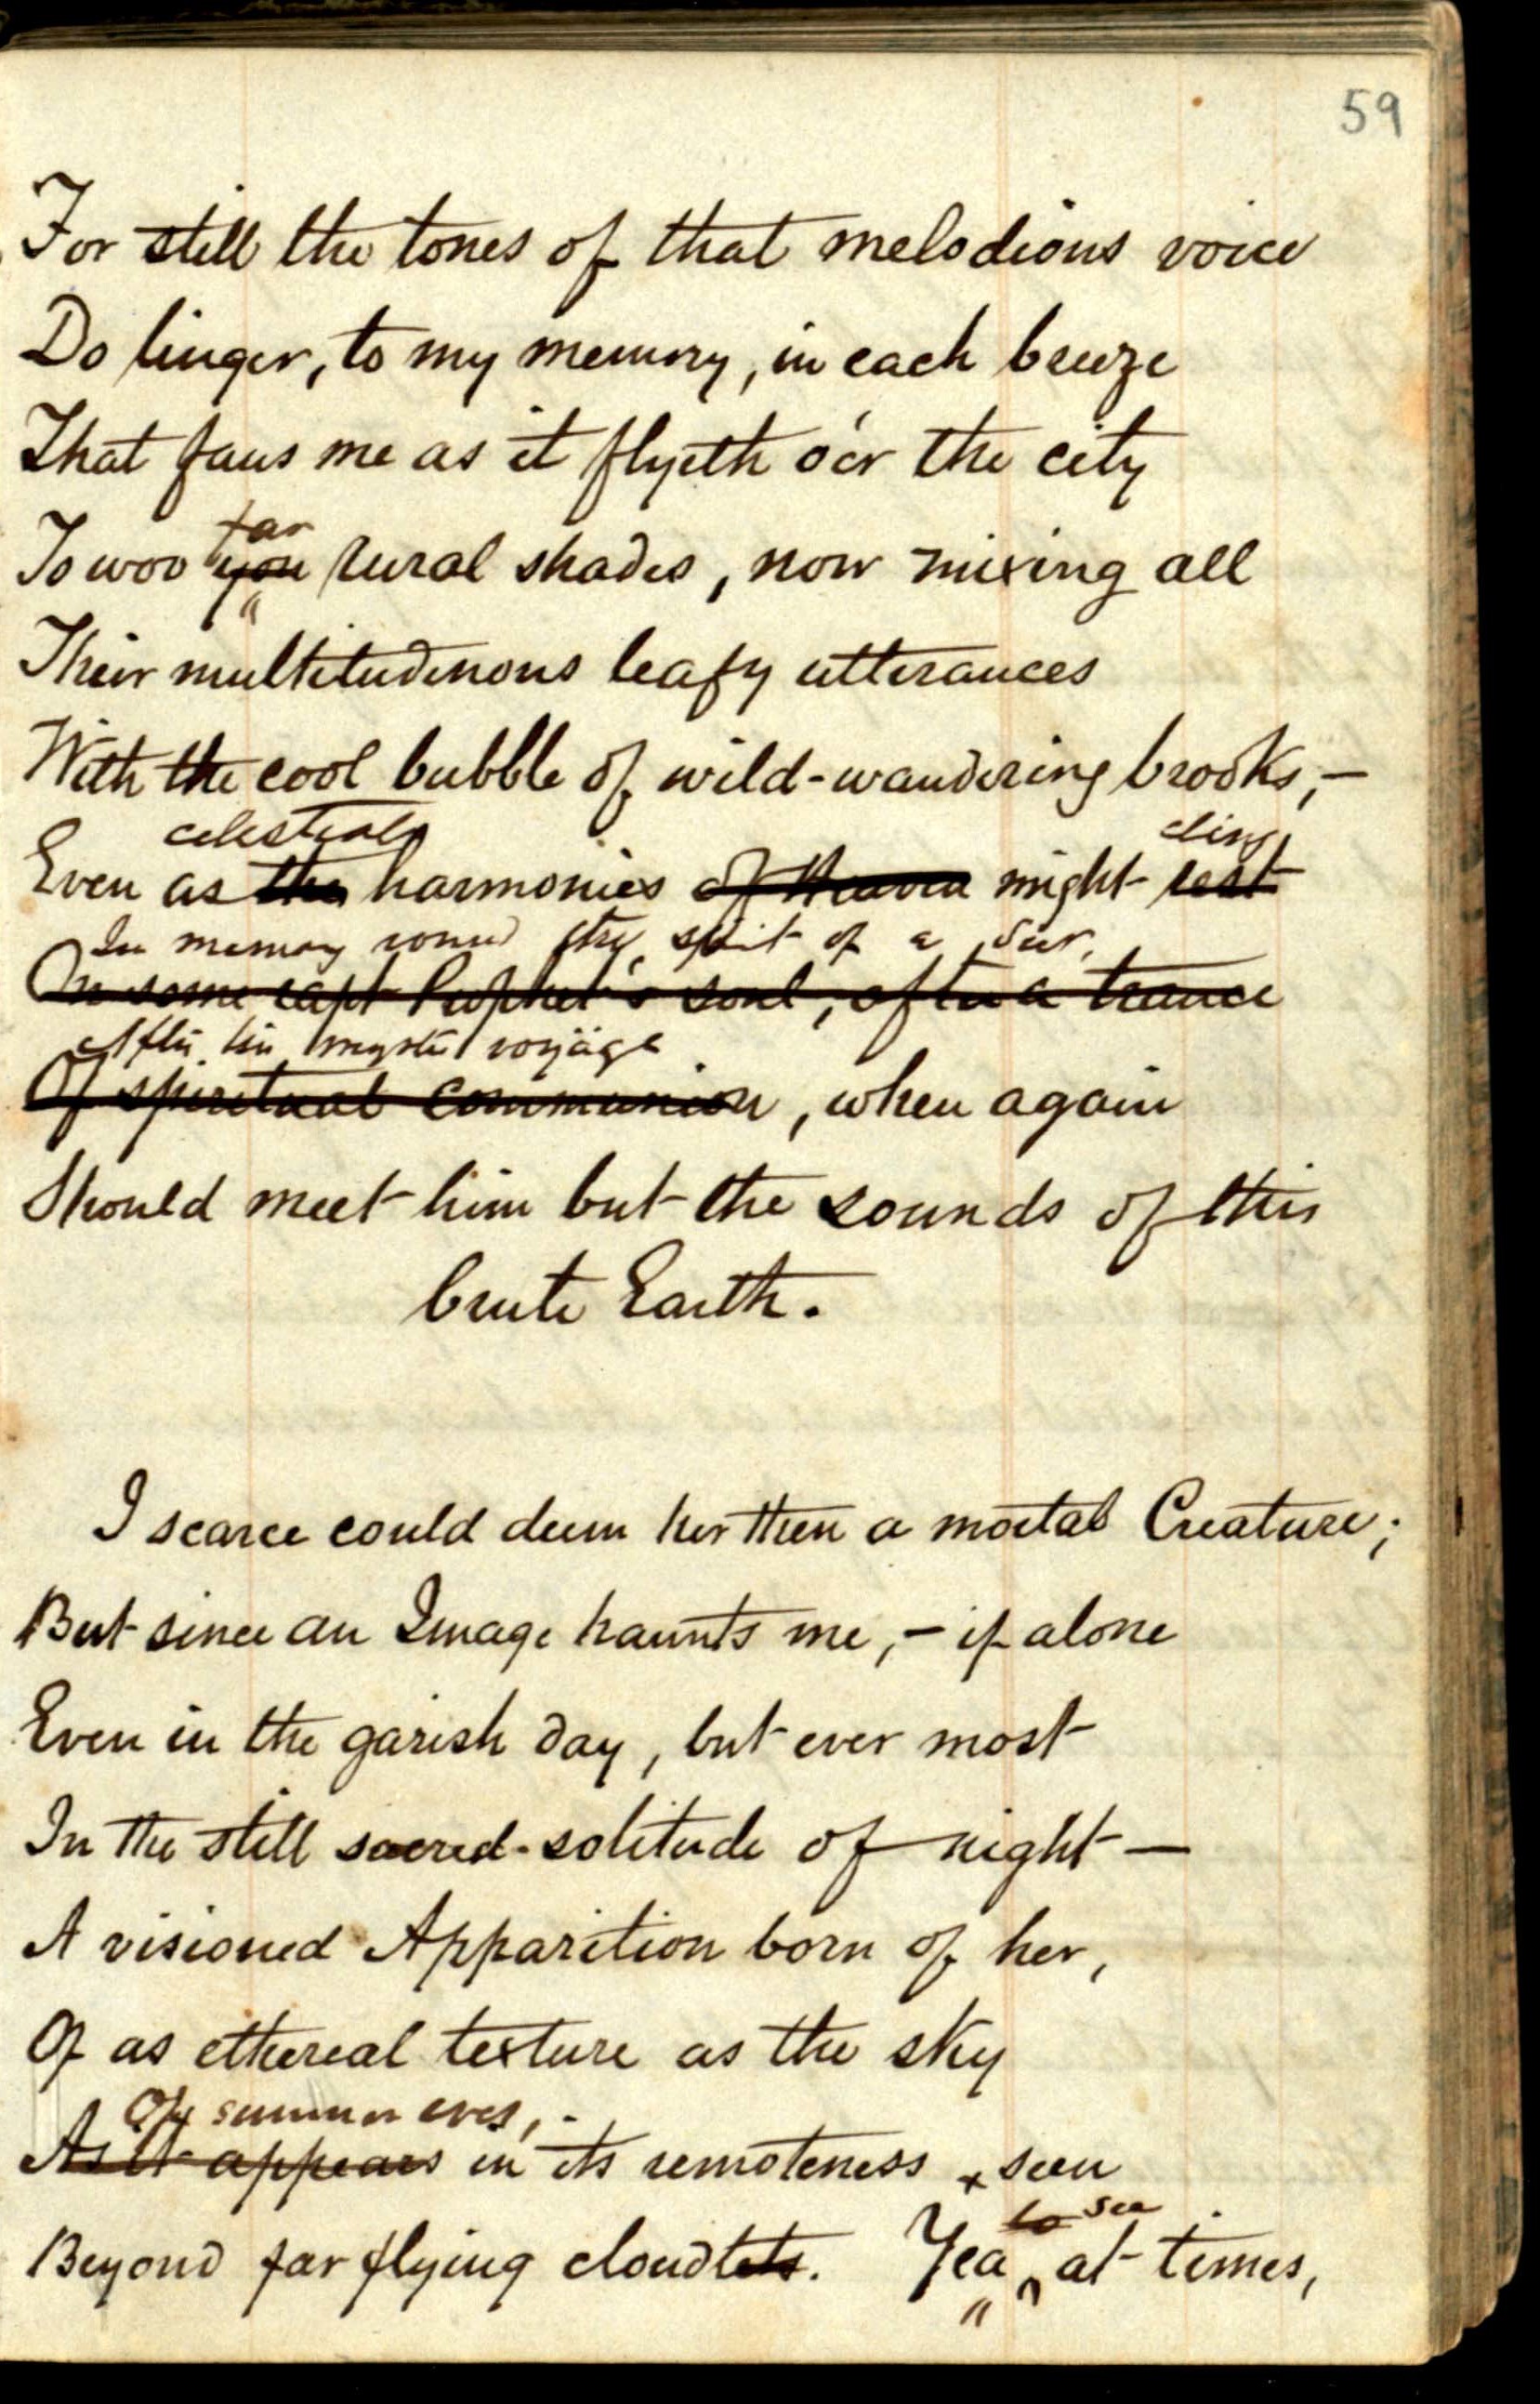 59
For still the tones of that melodious voice
Do linger, to my memory, in each breeze
That fans me as it flyeth o'er the city
far
To woo yon rural shades, now mixing all
Their multitudinous leafy utterances
With the cool bubble of wild-wandering brooks,—
celestial cling
Even as the harmonies of Heaven might rest
In memory round the spirit of a Seer,
On some rapt Prophet's soul, after a trance
After his mystic voyage
Of spiritual communion, when again
Should meet him but the sounds of this
brute Earth.
I scarce could deem her then a mortal Creature;
But since an Image haunts me,— if alone
Even in the garish day, but ever most
In the still sacred solitude of night—
A visioned Apparition born of her,
Of as ethereal texture as the sky
Of summer eves,
As it appears in its remoteness seen
to see
Beyond far flying cloudlets. Yea at times,